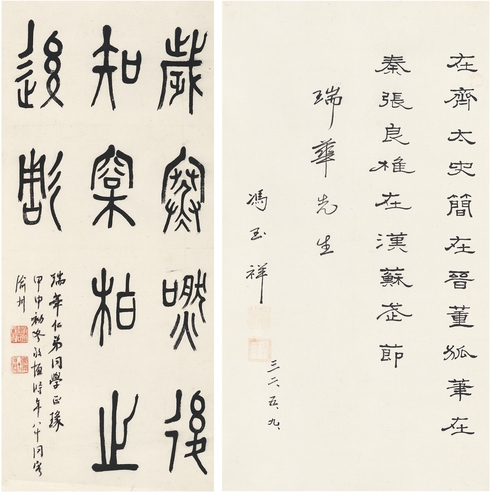 歲寒然後
知松柏之
後彫
瑞華仁弟同學正篆
甲申初冬敬恒時年八十同客
渝州
在齊太史簡在晉董狐筆在
秦張良椎在漢蘇武節
瑞華先生
馮玉祥
三六、五、九、